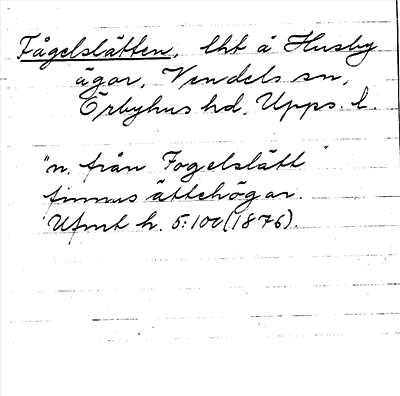 Fågelslätten, lht å Husby
ägor, Vendels sn,
Örbyhus hd, Upps. l.
"n. från Fogelslätt"
finnus ättehögar.
Ufmt h. 5:100 (1876).